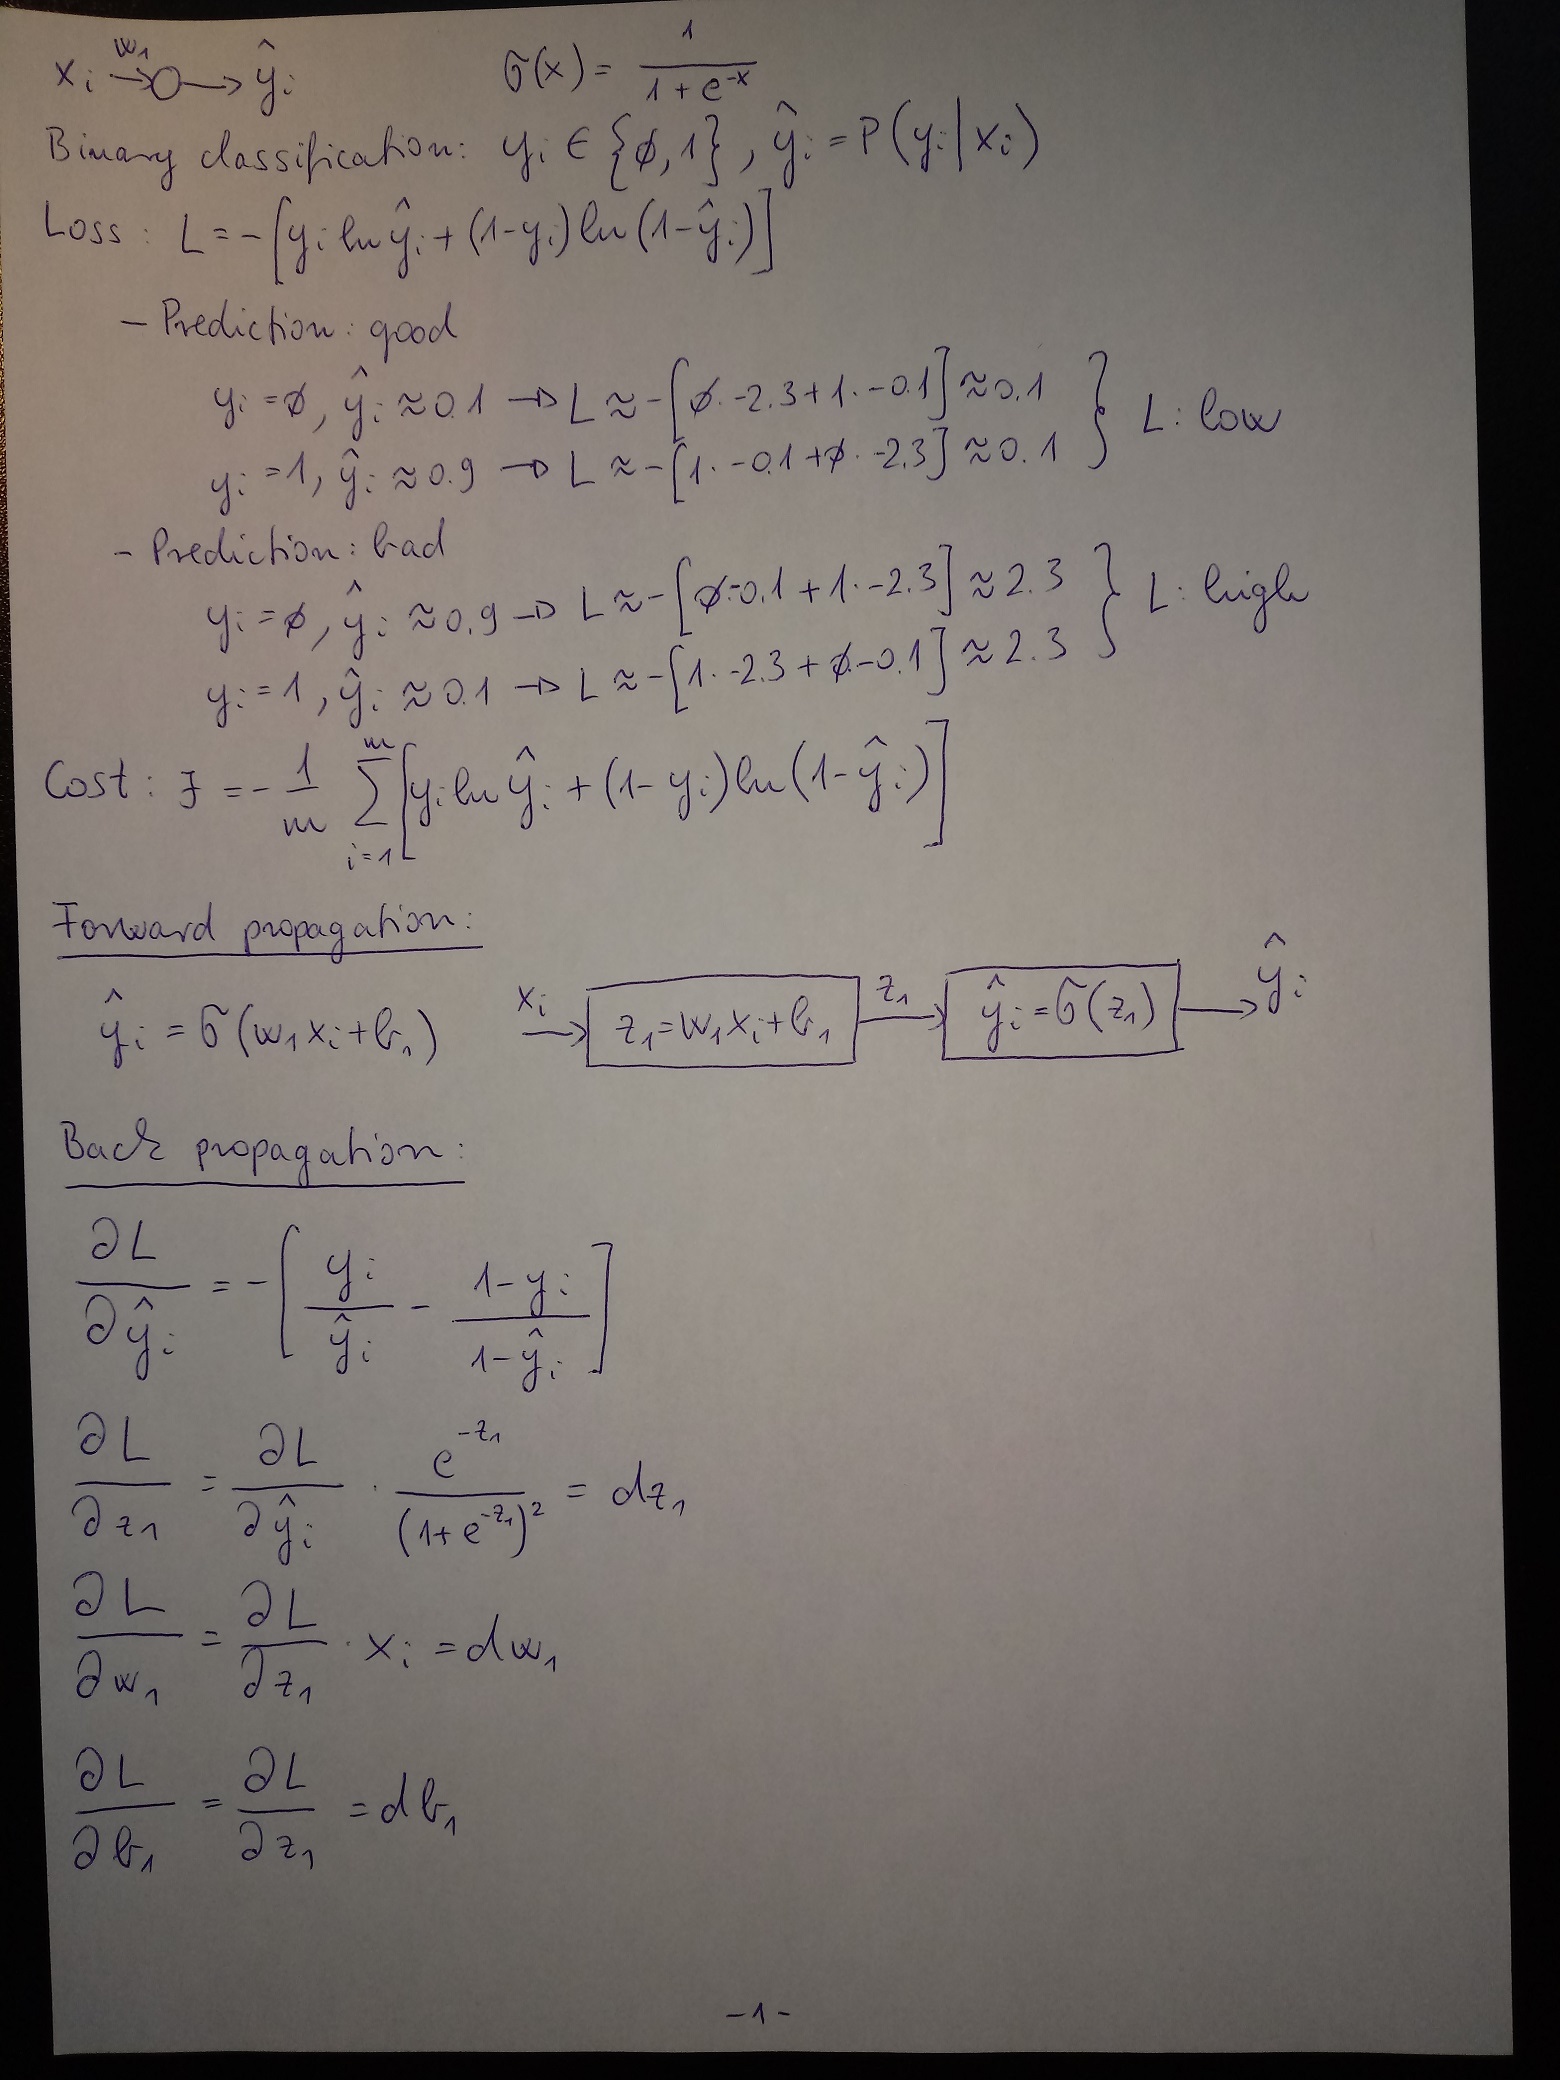 xᵢ →(w₁) ○ → ŷᵢ    σ(x) = 1 / (1 + e^(-x))
Binary classification: yᵢ ∈ {∅, 1}, ŷᵢ = P(yᵢ | xᵢ)
Loss: L = -[yᵢ ln ŷᵢ + (1-yᵢ) ln (1-ŷᵢ)]
- Prediction: good
yᵢ = ∅, ŷᵢ ≈ 0.1 → L ≈ -[∅ · -2.3 + 1 · -0.1] ≈ 0.1
yᵢ = 1, ŷᵢ ≈ 0.9 → L ≈ -[1 · -0.1 + ∅ · -2.3] ≈ 0.1
} L: low
- Prediction: bad
yᵢ = ∅, ŷᵢ ≈ 0.9 → L ≈ -[∅ · -0.1 + 1 · -2.3] ≈ 2.3
yᵢ = 1, ŷᵢ ≈ 0.1 → L ≈ -[1 · -2.3 + ∅ · -0.1] ≈ 2.3
} L: high
Cost: J = - 1/m Σ_(i=1)^m [yᵢ ln ŷᵢ + (1-yᵢ) ln (1-ŷᵢ)]
Forward propagation:
ŷᵢ = σ(w₁xᵢ + b₁)    xᵢ → z₁ = w₁xᵢ + b₁ →(z₁) ŷᵢ = σ(z₁) → ŷᵢ
Back propagation:
∂L/∂ŷᵢ = -[yᵢ/ŷᵢ - (1-yᵢ)/(1-ŷᵢ)]
∂L/∂z₁ = ∂L/∂ŷᵢ · e^(-z₁)/(1+e^(-z₁))² = dz₁
∂L/∂w₁ = ∂L/∂z₁ · xᵢ = dw₁
∂L/∂b₁ = ∂L/∂z₁ = db₁
-1-